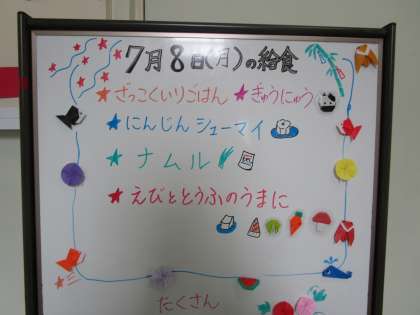 7月8日(月)の給食
★ざっこくいりごはん ★ぎゅうにゅう
★にんじんシューマイ
★ナムル
★えびととうふのうまに
たくさん